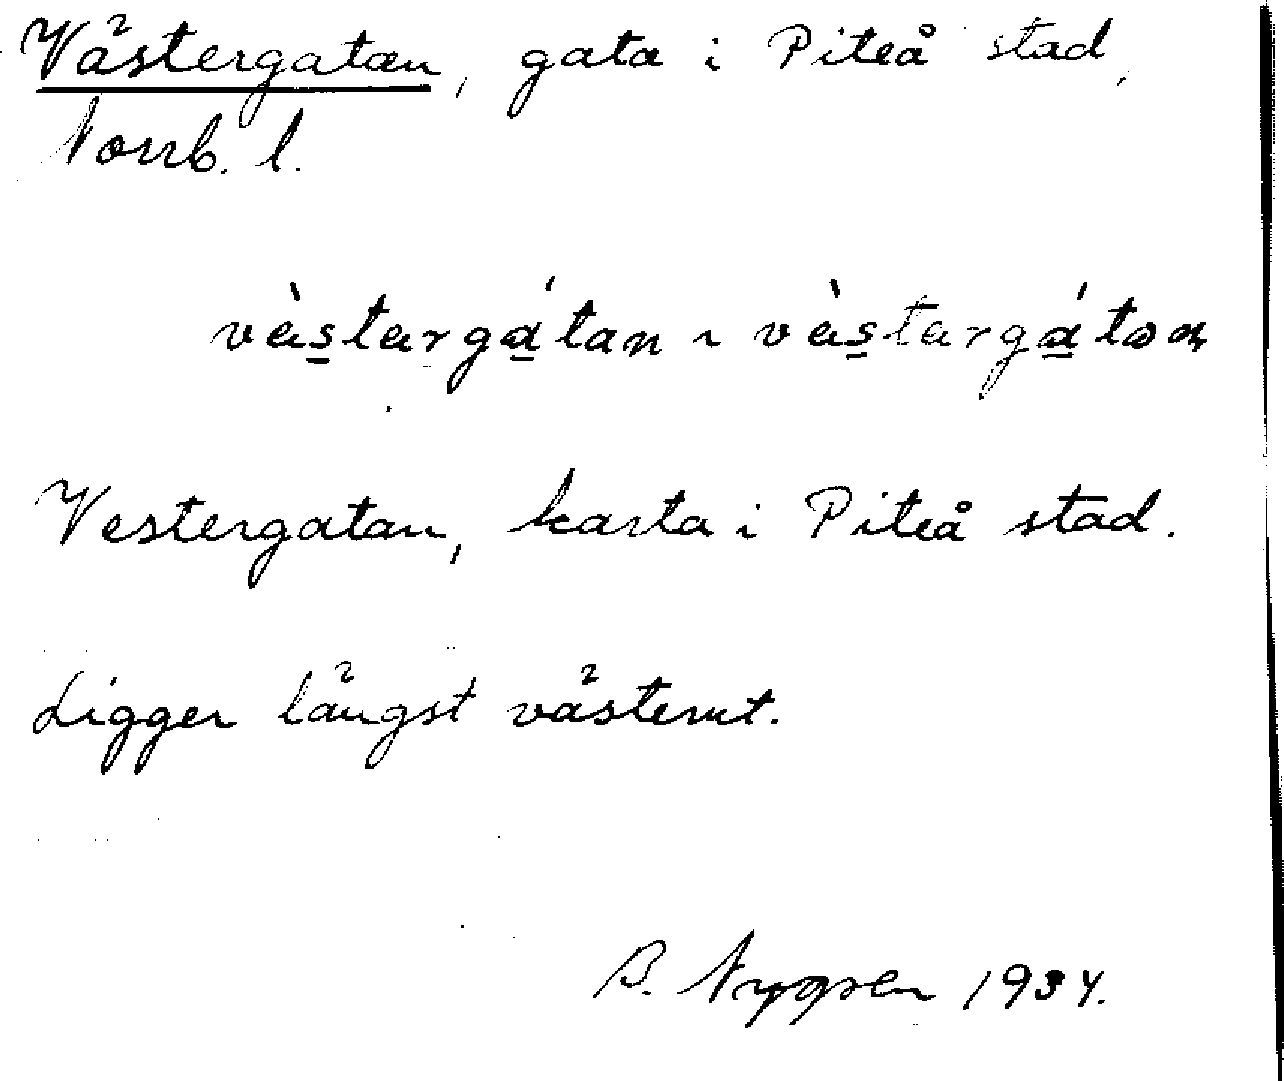 Västergatan, gata i Piteå stad,
Norrb. l.
vàstargátan ~ vàstargátən
Vestergatan, karta i Piteå stad.
Ligger längst västerut.
B. Nygren 1934.